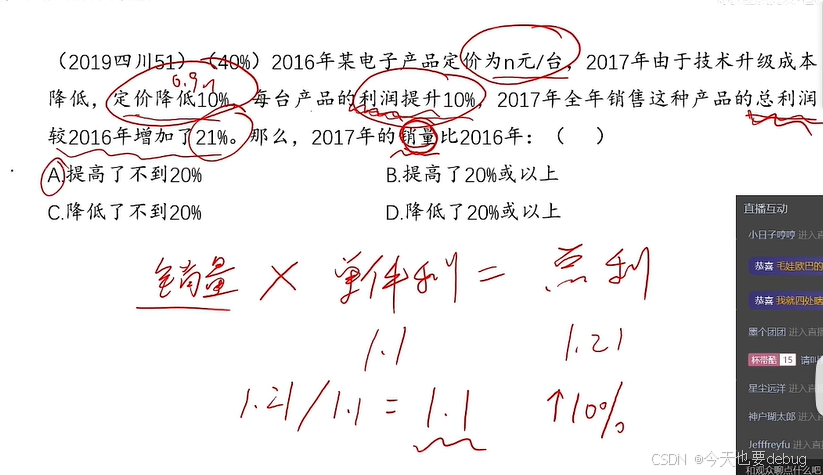 （2019四川51）（40%）2016年某电子产品定价为n元/台，2017年由于技术升级成本
0.9n
降低，定价降低10%，每台产品的利润提升10%，2017年全年销售这种产品的总利润
较2016年增加了21%。那么，2017年的销量比2016年：（ ）
A.提高了不到20%
B.提高了20%或以上
C.降低了不到20%
D.降低了20%或以上
销量 × 单件利 = 总利
1.1
1.21
1.21/1.1=1.1
↑10%
直播互动
小日子哼哼 进入直
恭喜 毛娃欧巴的
恭喜 我就四处瞎
墨个团团 进入直播
杯带酷 15 请叫
星尘远洋 进入直播
神户瑚太郎 进入
Jefffreyfu 进入直
和观众聊点什么吧
CSDN @今天也要debug